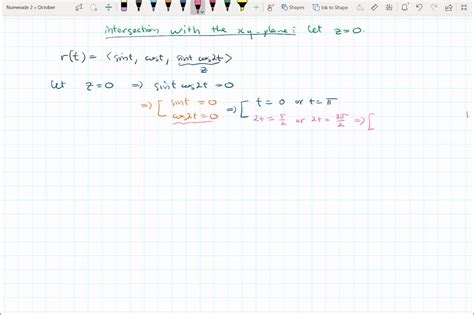 Numerade 2 > Octobre
Ink to Shape
Ink to Math
intersection with the xy-plane: let z=0.
r(t) = <sint, cost, sint cos2t>
z
Let z=0 => sint cos2t = 0
=> [ sint = 0 => [ t = 0 or t = π
cos2t = 0 2t = π/2 or 2t = 3π/2 => [